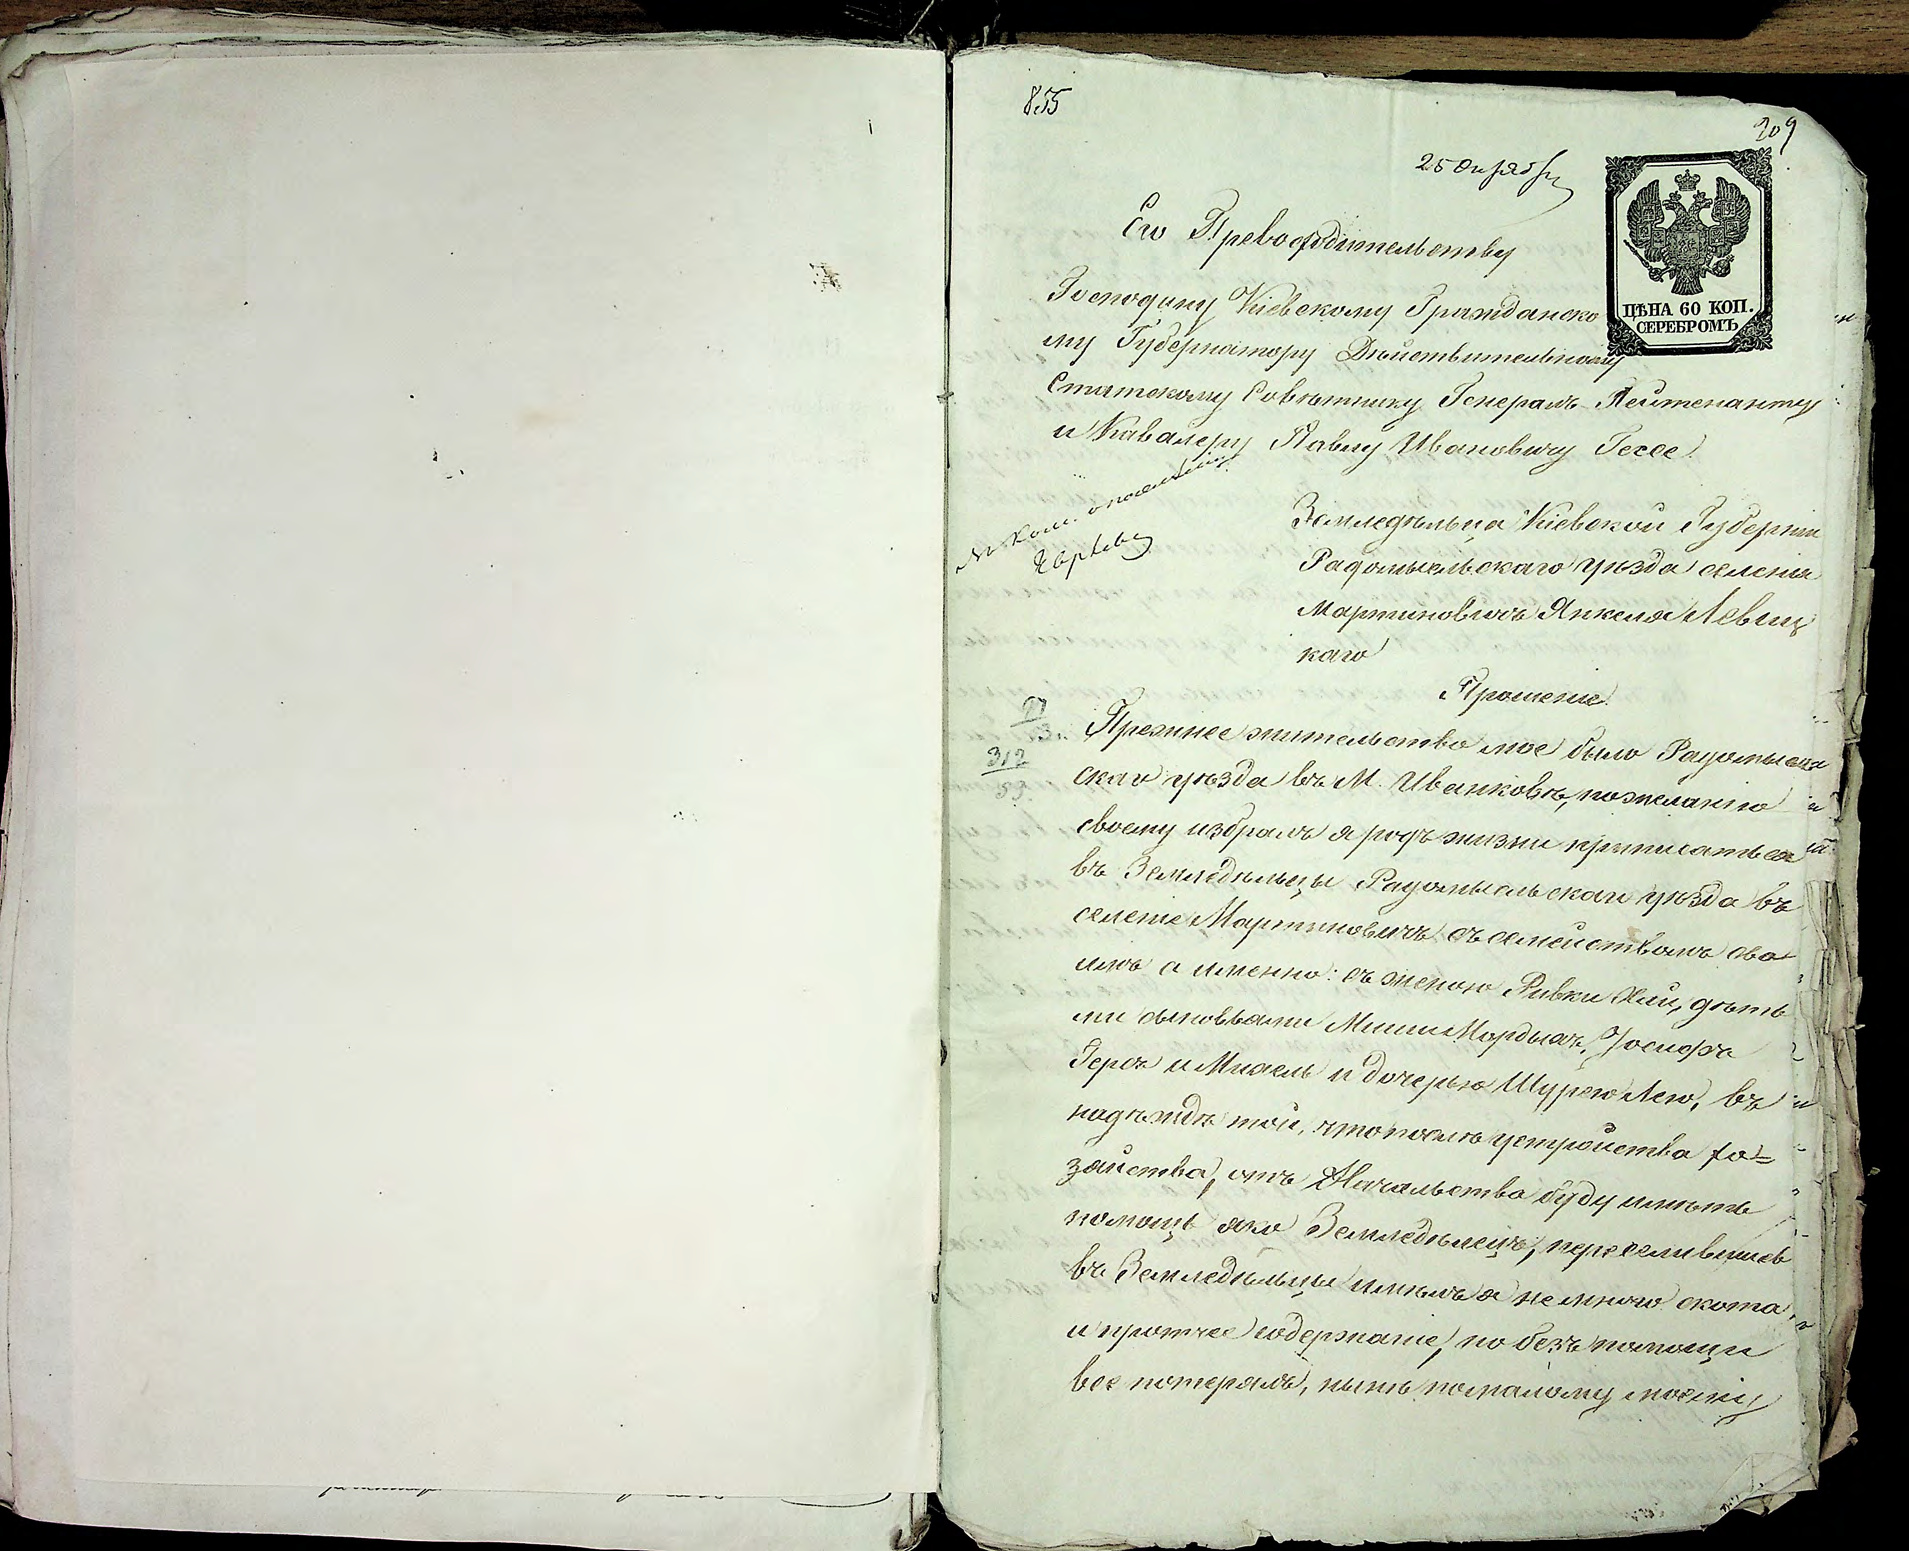 855
209
25 Октября
Его Превосходительству
Господину Кіевскому Гражданско
му Губернатору Дѣйствительному
Статскому Совѣтнику Генералъ-Лейтенанту
и Кавалеру Павлу Ивановичу Гессе.
ЦѢНА 60 КОП.
СЕРЕБРОМЪ
Земледѣльца Кіевской Губерніи
Радомысльскаго уѣзда селенія
Мартиновичъ Янкеля Левиц
каго
Прошеніе
312
53
Прежнее жительство мое было Радомысль
скаго уѣзда въ М. Иванковѣ, по желанію
своему избралъ я родъ жизни приписаться
въ Земледѣльцы Радомысльскаго уѣзда въ
селеніе Мартиновичъ съ семействомъ сво
имъ а именно: съ женою Ривки Хаи, дѣть
ми сыновьями Мошки Мордыхъ, Іосифъ
Герсъ и Михель и дочерью Шурею Лею, въ
надѣждѣ той, что послѣ устройства хо=
зяйства, отъ Начальства буду имѣть
помощь яко Земледѣлецъ, переселившись
въ Земледѣльцы имѣлъ я не много скота,
и протчее содержаніе, но безъ помощи
все потерялъ, нынѣ по малому моему